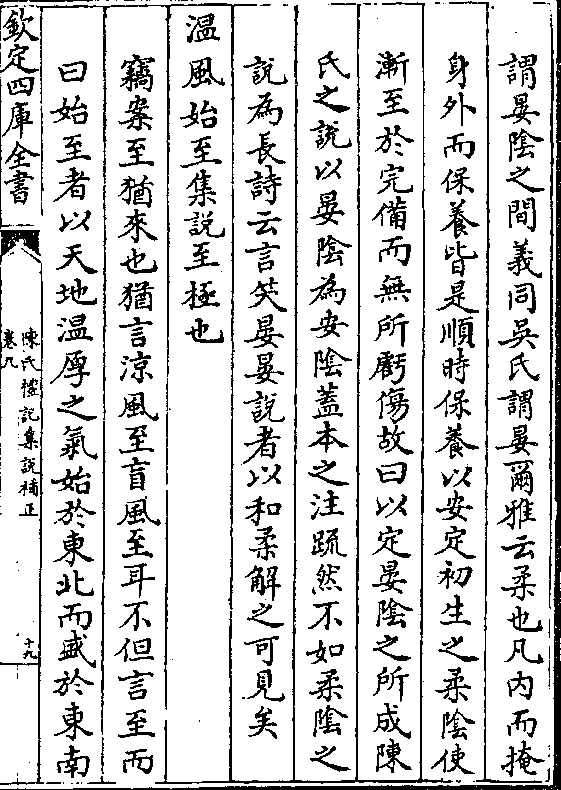 謂晏陰之間義同吳氏謂晏爾雅云柔也凡内而掩
身外而保養皆是順時保養以安定初生之柔陰使
漸至於完備而無所虧傷故曰以定晏陰之所成陳
氏之說以晏陰為安陰蓋本之注疏然不如柔陰之
說為長詩云言笑晏晏說者以和柔解之可見矣
温風始至集說至極也
竊案至猶來也猶言涼風至盲風至耳不但言至而
曰始至者以天地温厚之氣始於東北而盛於東南
欽定四庫全書
陳氏禮記集說補正
卷九
十九